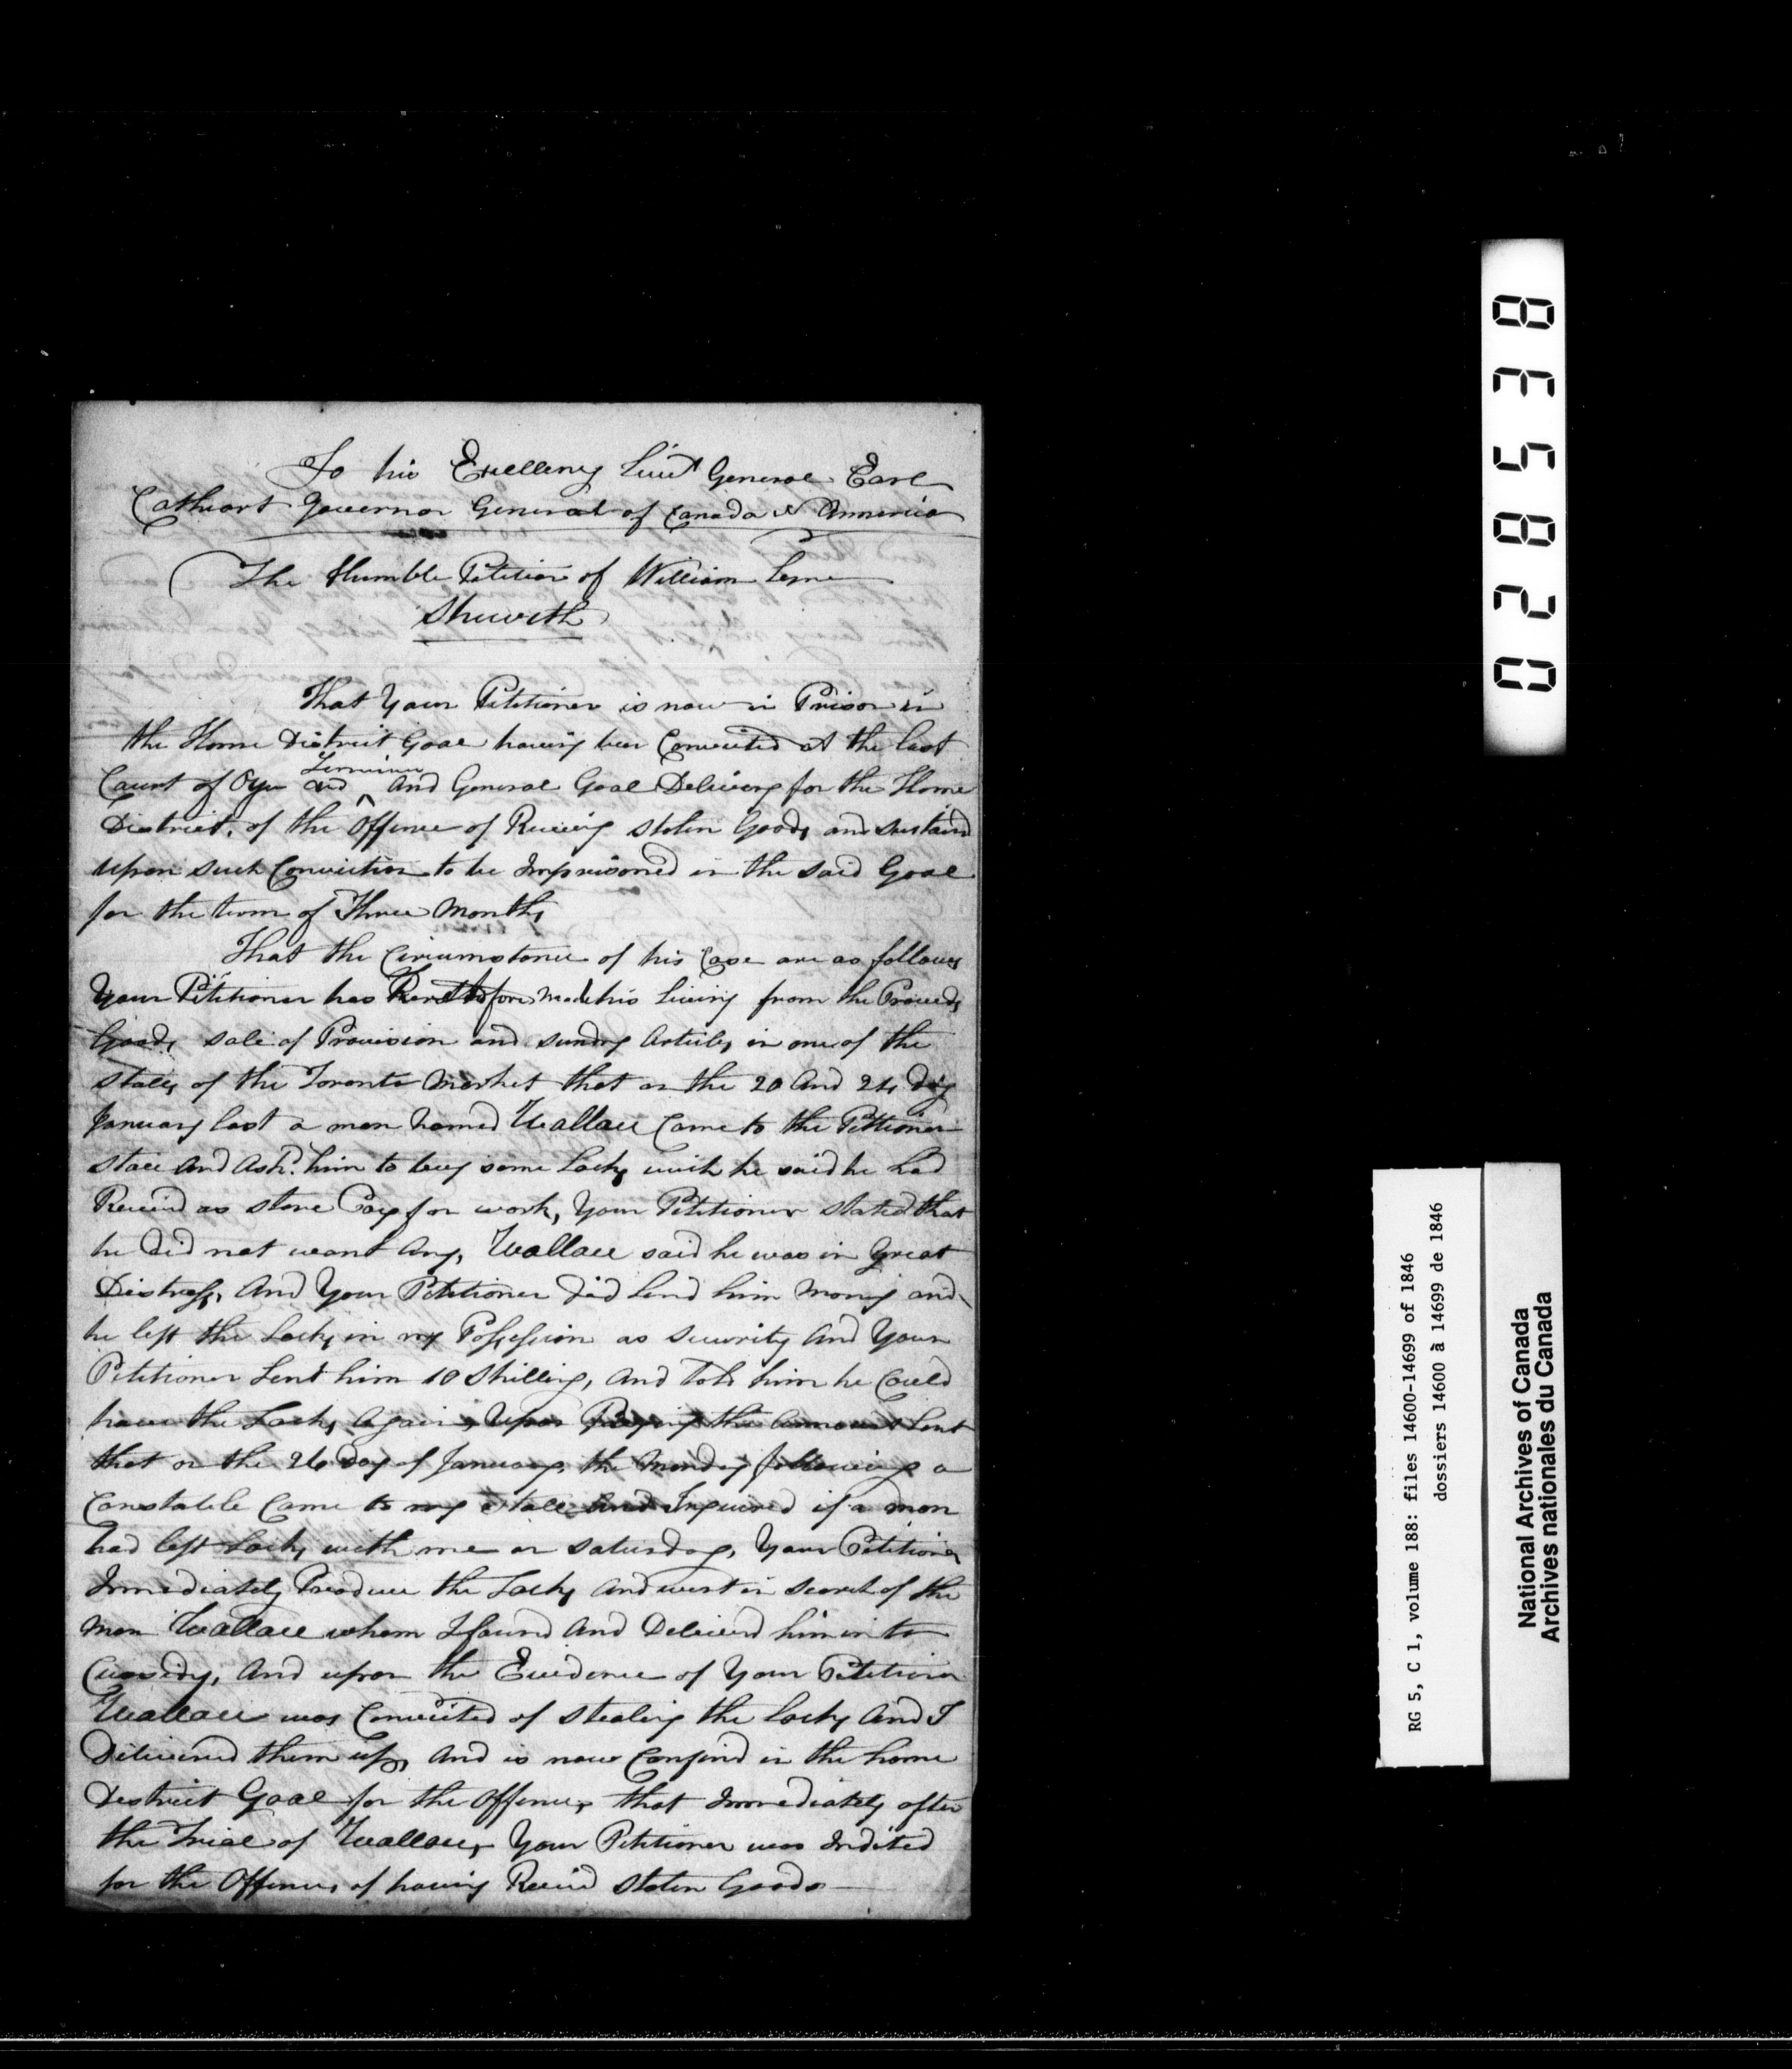 To his Excellency Lieut General Earl
Cathcart Governor General of Canada N America
The Humble Petition of William
Sheweth
That Your Petitioner is now in Prison in
the Home District Goal having been Convicted at the last
Court of Oyer and Terminer And General Goal Delivery for the Home
District, of the Offence of Receiving stolen Goods and
upon such Conviction to be Imprisoned in the said Goal
for the term of Three Months
That the Circumstance of his Case are as follows
Your Petitioner has Heretofore Made his living from the Proceeds
Goods sale of Provision and sundry Articles in one of the
stalls of the Toronto Market that on the 20 And 24 day
January last a man Named Wallace Came to the Petitioner
stall And Askd. him to buy some Locks wich he said he had
Receivd as store Pay for work, Your Petitioner stated that
he did not want Any, Wallace said he was in Great
Distress, And Your Petitioner did Lend him Money and
he left the Locks in my Possession as security And Your
Petitioner Lent him 10 Shillings, And told him he Could
have the Locks Again, Upon Paying the Ammount Lent
that on the 26 Day of January, the Monday following a
Constable Came to my stall And Inquired if a man
had left Locks with me on Saturday, Your Petitioner
Immediately Produce the Locks And went in search of the
Man Wallace whom I found And Deliverd him in to
And upon the Evidence of Your Petitioner
Wallace was Convicted of stealing the Locks And I
Delivered them up, And is now Confind in the home
District Goal for the Offence, that Immediately after
the Trial of Wallace, Your Petitioner was Indited
for the Offence, of having Receivd stolen Goods
028538
RG 5, C 1, volume 188: files 14600-14699 of 1846
dossiers 14600 à 14699 de 1846
National Archives of Canada
Archives nationales du Canada